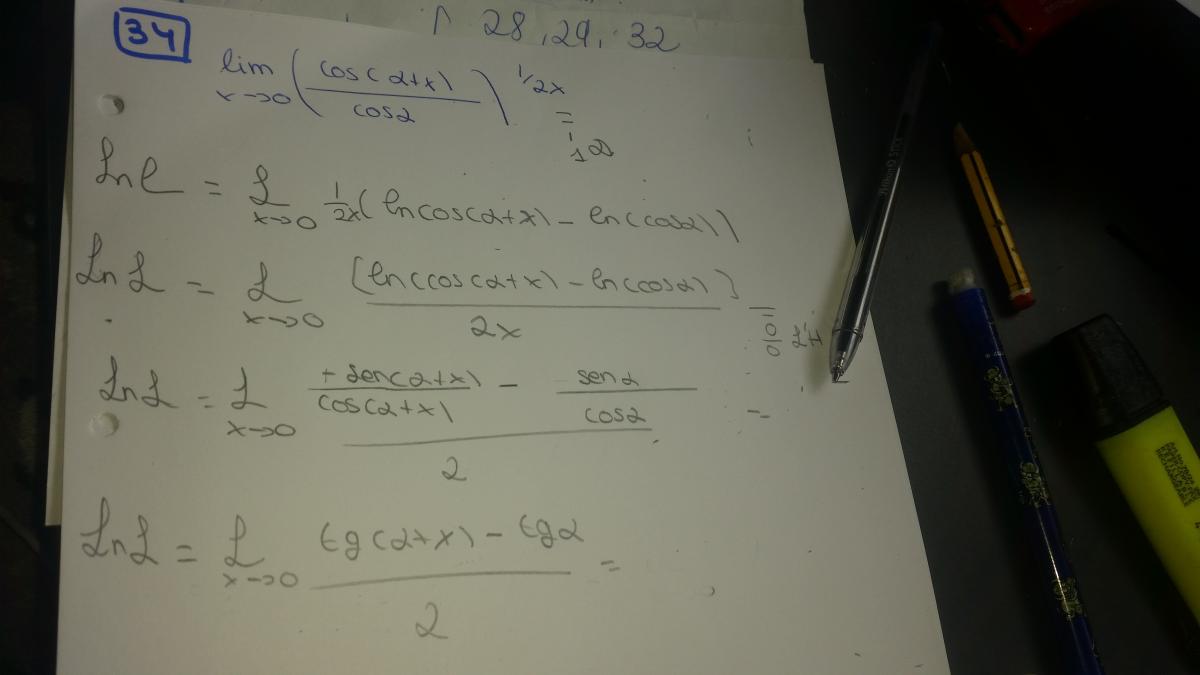 Λ 28, 29, 32
34
lim x→0 (cos(α+x) / cosα)^1/2x = 1^∞
Ln l = L x→0 1/2x (ln cos(α+x) - ln(cosα))
Ln L = L x→0 [ln(cos(α+x) - ln(cosα)] / 2x = 0/0 L'H
Ln L = L x→0 (+ sen(α+x) / cos(α+x) - senα / cosα) / 2 =
Ln L = L x→0 (tg(α+x) - tgα) / 2 =